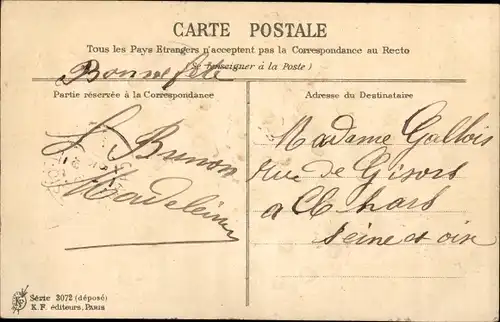 CARTE POSTALE
Tous les Pays Etrangers n'acceptent pas la Correspondance au Recto
(Se Renseigner à la Poste)
Bonne fête
Partie réservée à la Correspondance
Adresse du Destinataire
Madeleine
Madame Gallois
Rue de Gisors
a Chars
Seine et oise
Série 3072 (déposé)
K. F. éditeurs, PARIS